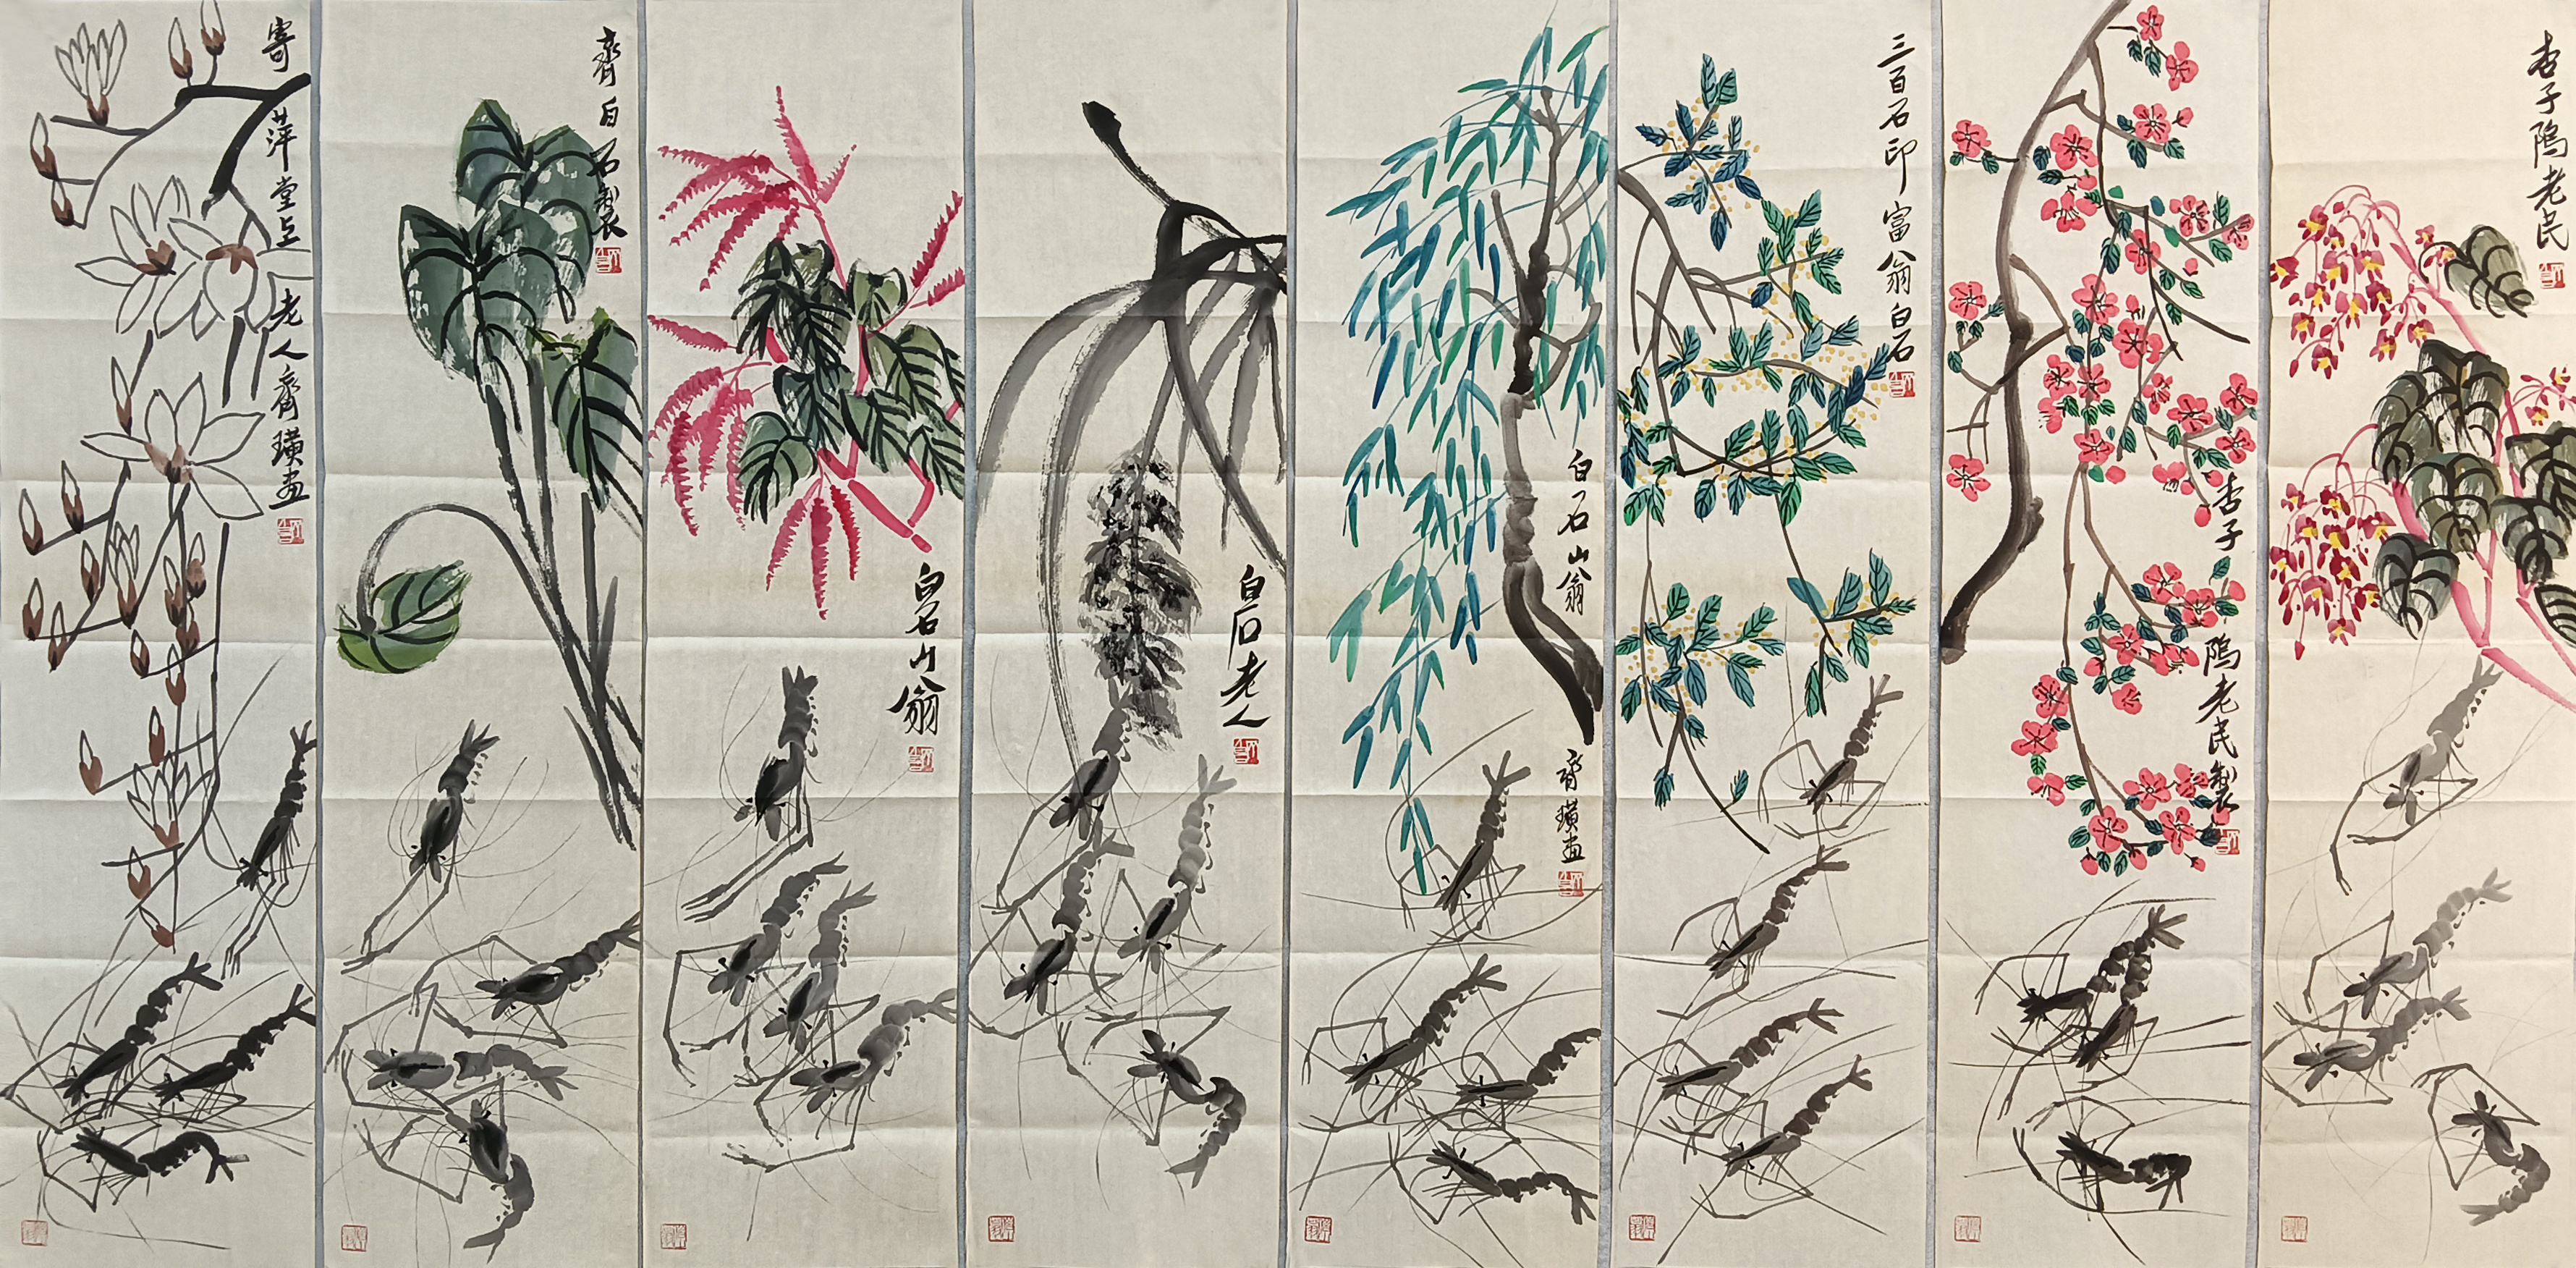 寄萍堂上老人齊璜画
齊白石製
白石山翁
白石老人
白石山翁
齊璜画
三百石印富翁白石
杏子隝老民製
杏子隝老民